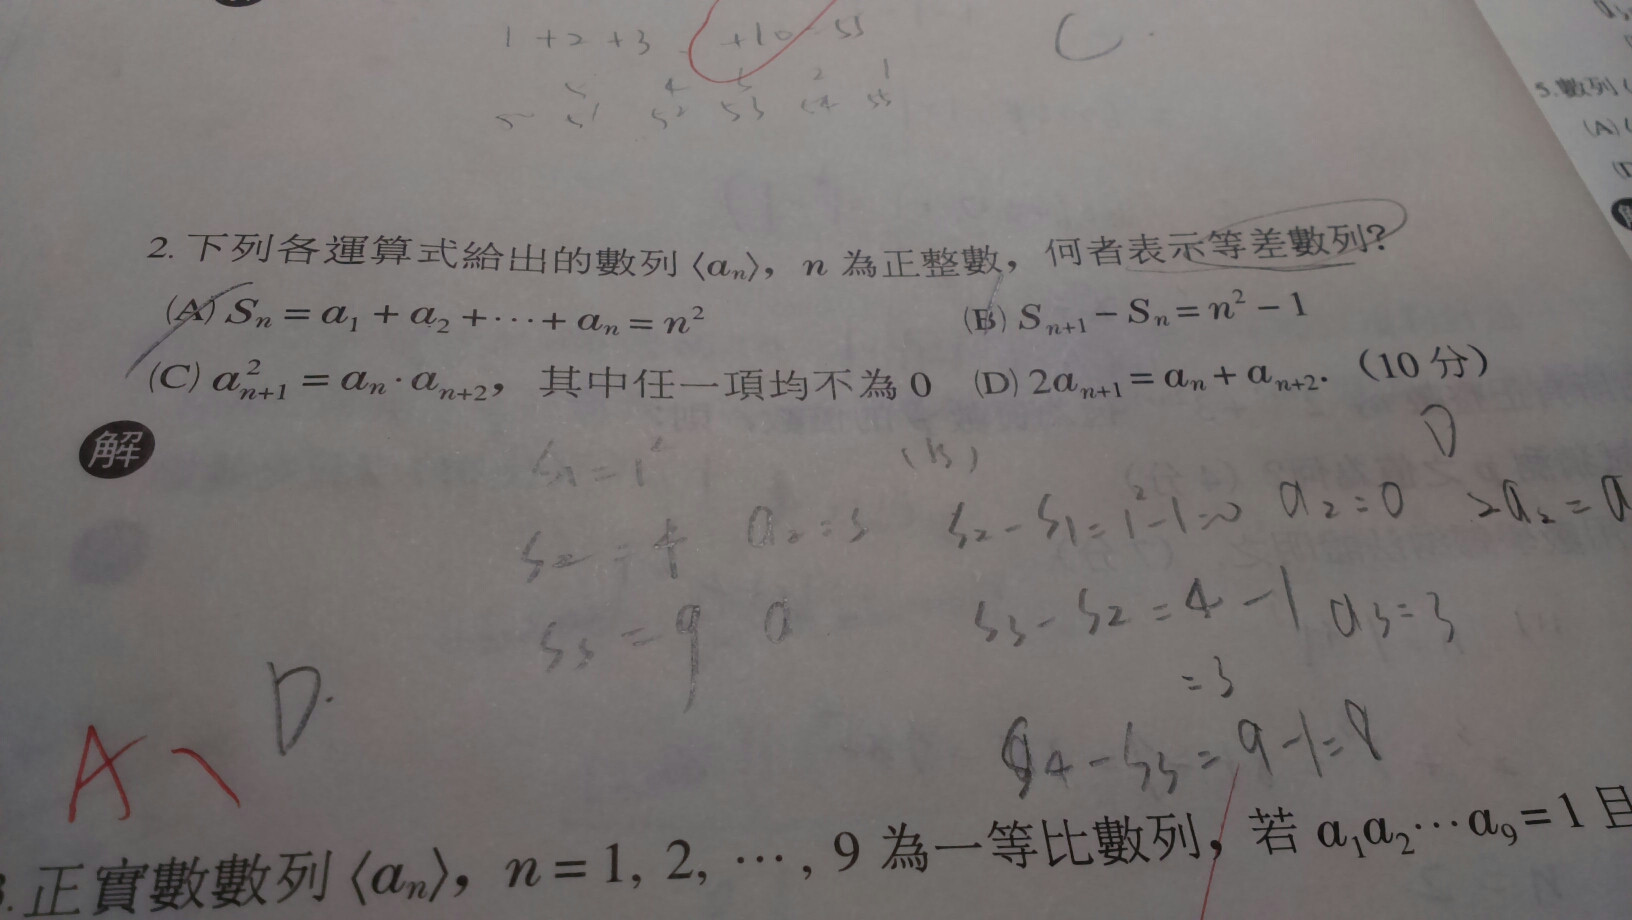 1 + 2 + 3 +10 55
C.
5 4 3 2 1
51 52 53 54 55
5.數列
(A)
2. 下列各運算式給出的數列〈aₙ〉，n 為正整數，何者表示等差數列？
(A) Sₙ = a₁ + a₂ + ⋯ + aₙ = n²　(B) Sₙ₊₁ − Sₙ = n² − 1
(C) aₙ₊₁² = aₙ · aₙ₊₂，其中任一項均不為 0　(D) 2aₙ₊₁ = aₙ + aₙ₊₂.（10 分）
解
S₁ = 1²　(B)　D
S₂ = 4　a₂ = 3　S₂ − S₁ = 1² − 1 = 0　a₂ = 0　2a₂ = a
S₃ = 9　a　S₃ − S₂ = 4 − 1　a₃ = 3
= 3
A、D.
S₄ − S₃ = 9 − 1 = 8
3. 正實數數列〈aₙ〉，n = 1, 2, ⋯, 9 為一等比數列，若 a₁a₂⋯a₉ = 1 且